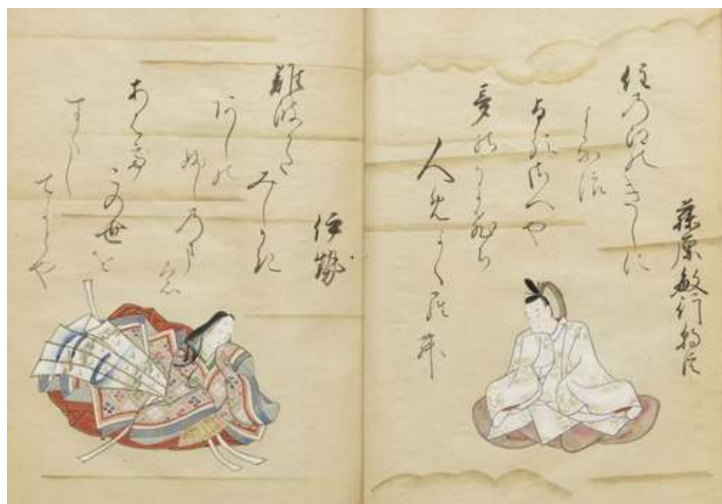 藤原敏行朝臣
住乃江のきしに
よる波
よるさへや
夢のかよひち
人免よくら舞
伊勢
難波かた
みしかき
あしの
ふし乃ま
も
あはて
この世を
すくし
てよとや